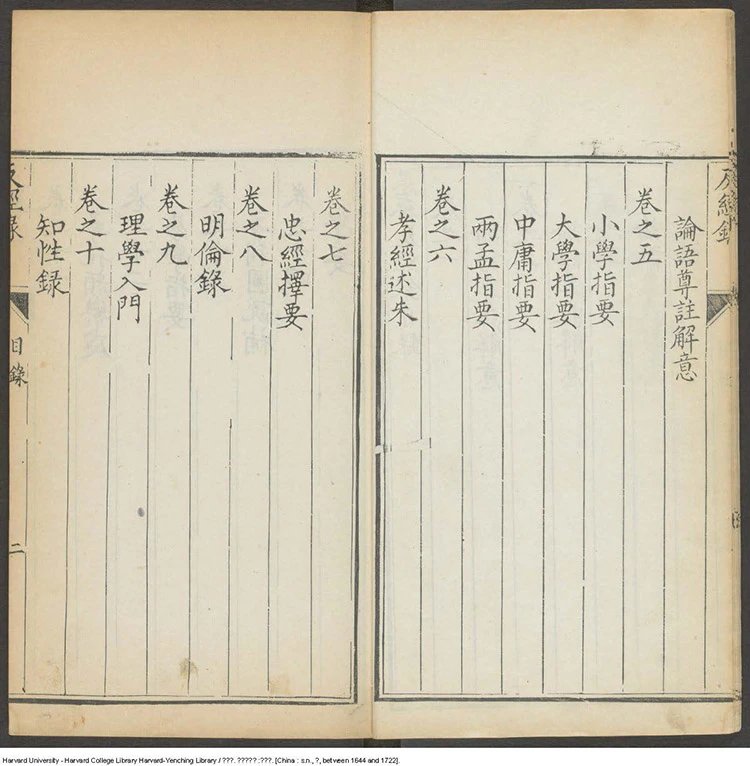 論語尊註解意
卷之五
小學指要
大學指要
中庸指要
兩孟指要
卷之六
孝經述朱
卷之七
忠經擇要
卷之八
明倫錄
卷之九
理學入門
卷之十
知性録
反經录
目錄
二
Harvard University - Harvard College Library Harvard-Yenching Library / ???. ????? :???. [China : s.n., ?, between 1644 and 1722].